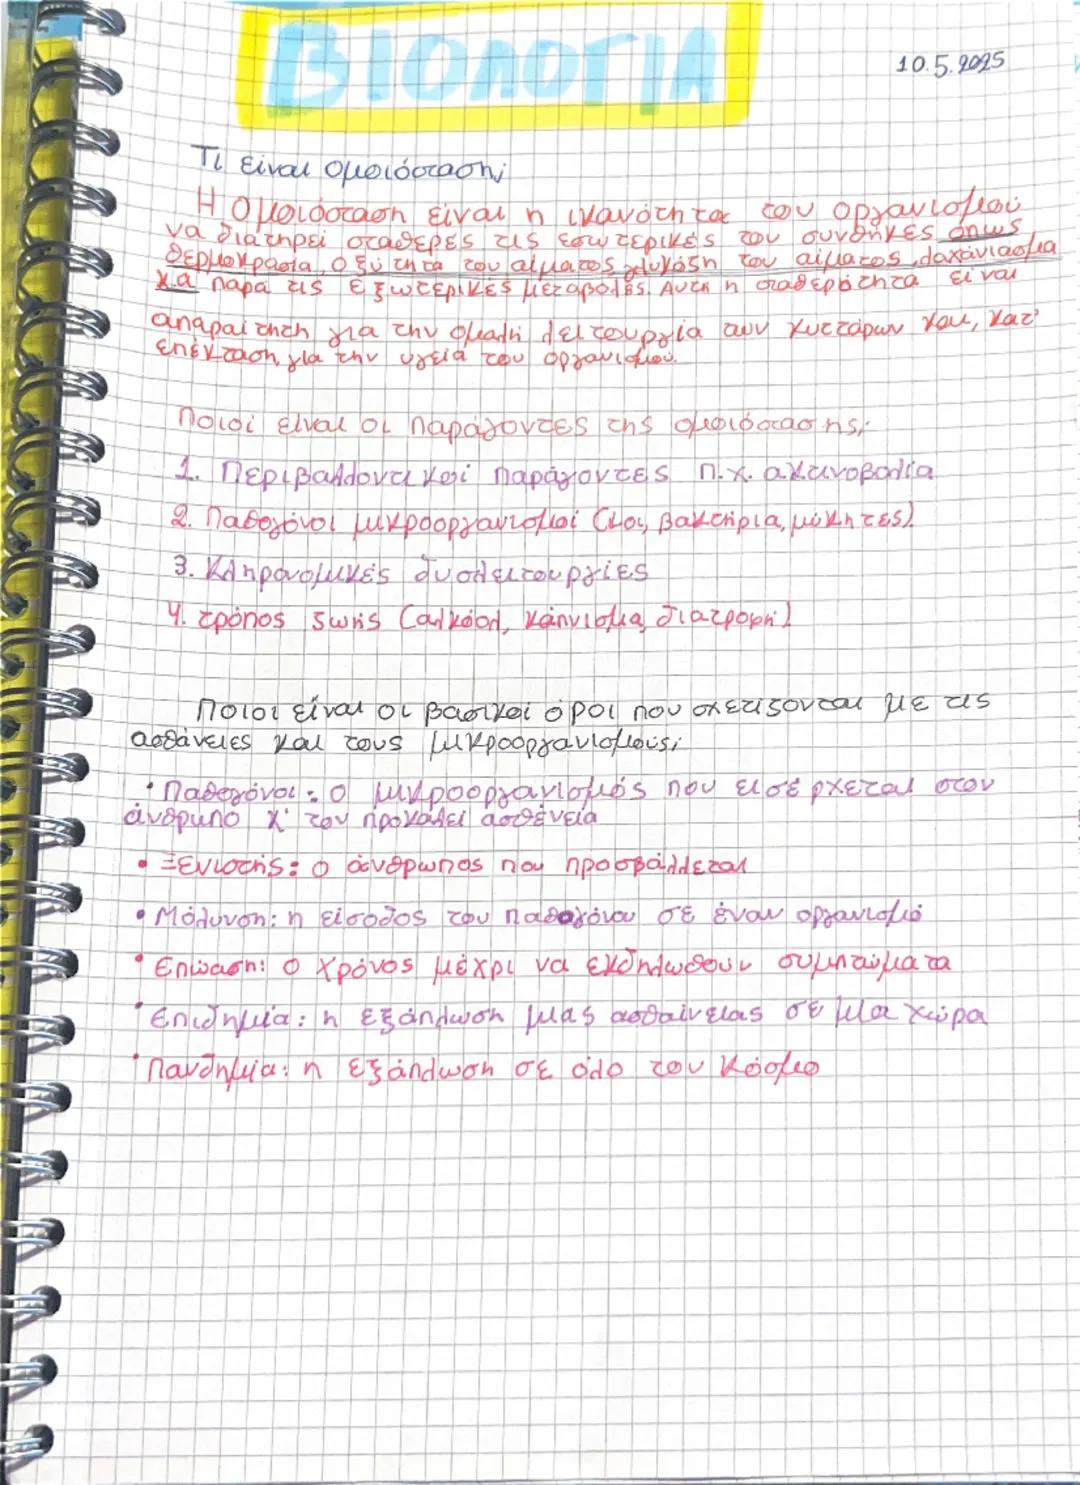 ΒΙΟΛΟΓΙΑ
10.5.2025
Τι είναι ομοιόσταση;
Η Ομοιόσταση είναι η ικανότητα του οργανισμού
να διατηρεί σταθερές τις εσωτερικές του συνθήκες όπως
θερμοκρασία, οξύτητα του αίματος, γλυκόζη του αίματος, λαχάνιασμα
κ.α παρά τις εξωτερικές μεταβολές. Αυτή η σταθερότητα είναι
απαραίτητη για την ομαλή λειτουργία των κυττάρων και, κατ'
επέκταση, για την υγεία του οργανισμού.
Ποιοί είναι οι παράγοντες της ομοιόστασης;
1. Περιβαλλοντικοί παράγοντες π.χ. ακτινοβολία
2. Παθογόνοι μικροοργανισμοί (ιοι, βακτήρια, μύκητες)
3. Κληρονομικές δυσλειτουργίες
4. τρόπος ζωής (αλκόολ, κάπνισμα, διατροφή)
Ποιοι είναι οι βασικοί όροι που σχετίζονται με τις
ασθένειες και τους μικροοργανισμούς;
• Παθογόνοι: ο μικροοργανισμός που εισέρχεται στον
άνθρωπο κ' του προκαλεί ασθένεια
• Ξενιστής: ο άνθρωπος που προσβάλλεται
• Μόλυνση: η είσοδος του παθογόνου σε έναν οργανισμό
• Επώαση: ο χρόνος μέχρι να εκδηλωθούν συμπτώματα
• Επιδημία: η εξάπλωση μιας ασθαίνειας σε μια χώρα
• Πανδημία: η εξάπλωση σε όλο τον κόσμο